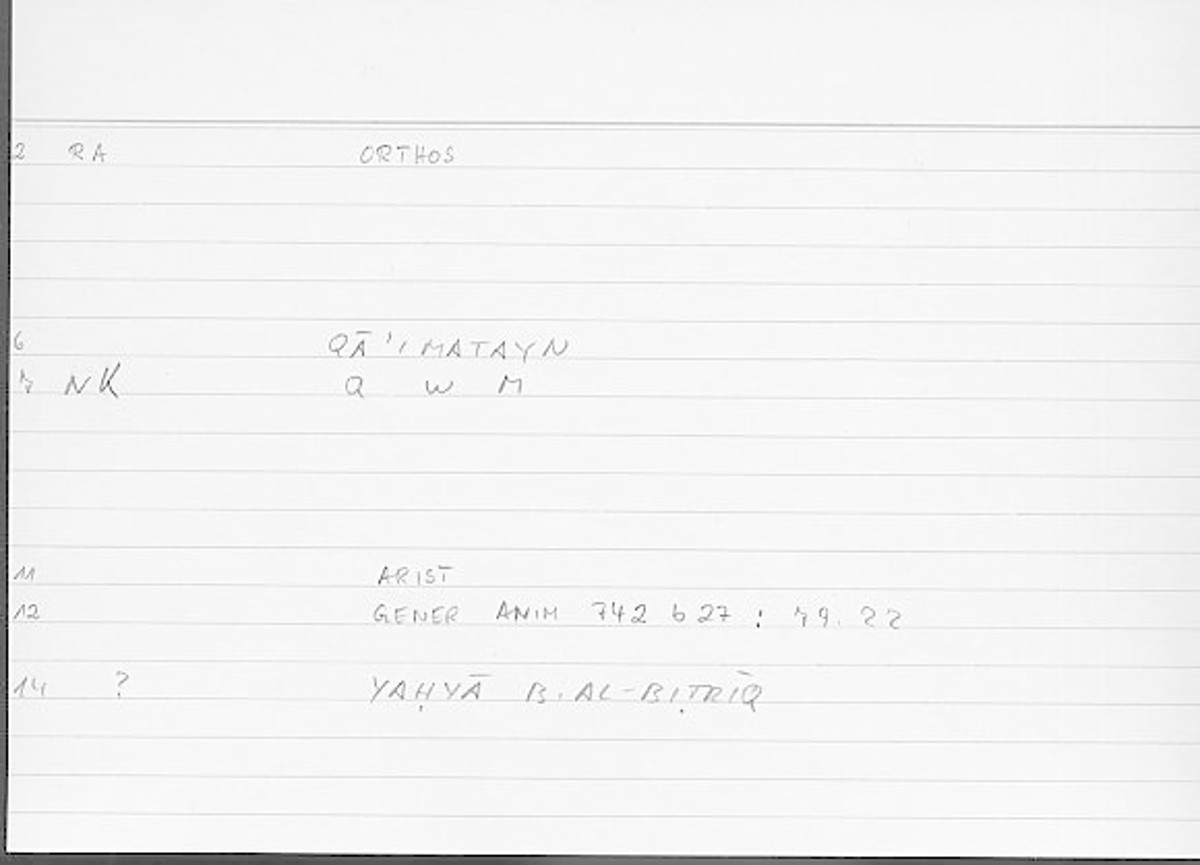 2 RA ORTHOS
6 QĀ'IMATAYN
7 NK Q W M
11 ARIST
12 GENER ANIM 742 b 27 : 79. 22
14 ? YAḤYĀ B. AL-BIṬRĪQ